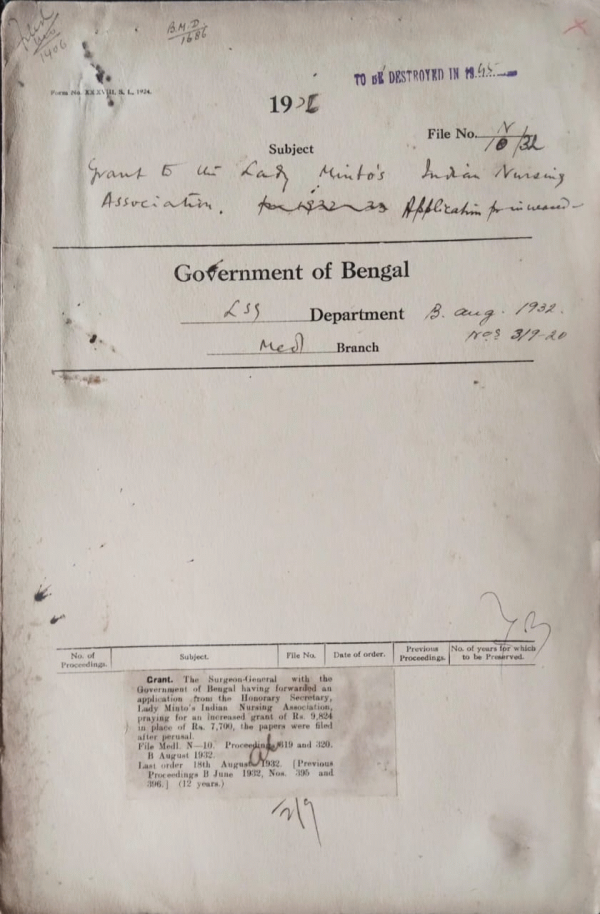 B.M.D
1686
1406
TO BE DESTROYED IN 1945
Form No. XXXVIII, S. L., 1924.
1932
File No. N/10/32
Subject
Grant to the Lady Minto's Indian Nursing
Association. for 1932-33 Application for increased
Government of Bengal
LSG Department B. Aug. 1932.
Nos 319-20
Medl Branch
No. of Proceedings. Subject. File No. Date of order. Previous Proceedings. No. of years for which to be Preserved.
Grant. The Surgeon-General with the
Government of Bengal having forwarded an
application from the Honorary Secretary,
Lady Minto's Indian Nursing Association,
praying for an increased grant of Rs. 9,824
in place of Rs. 7,700, the papers were filed
after perusal.
File Medl. N—10. Proceedings 319 and 320.
B August 1932.
Last order 18th August 1932. [Previous
Proceedings B June 1932, Nos. 395 and
396.] (12 years.)